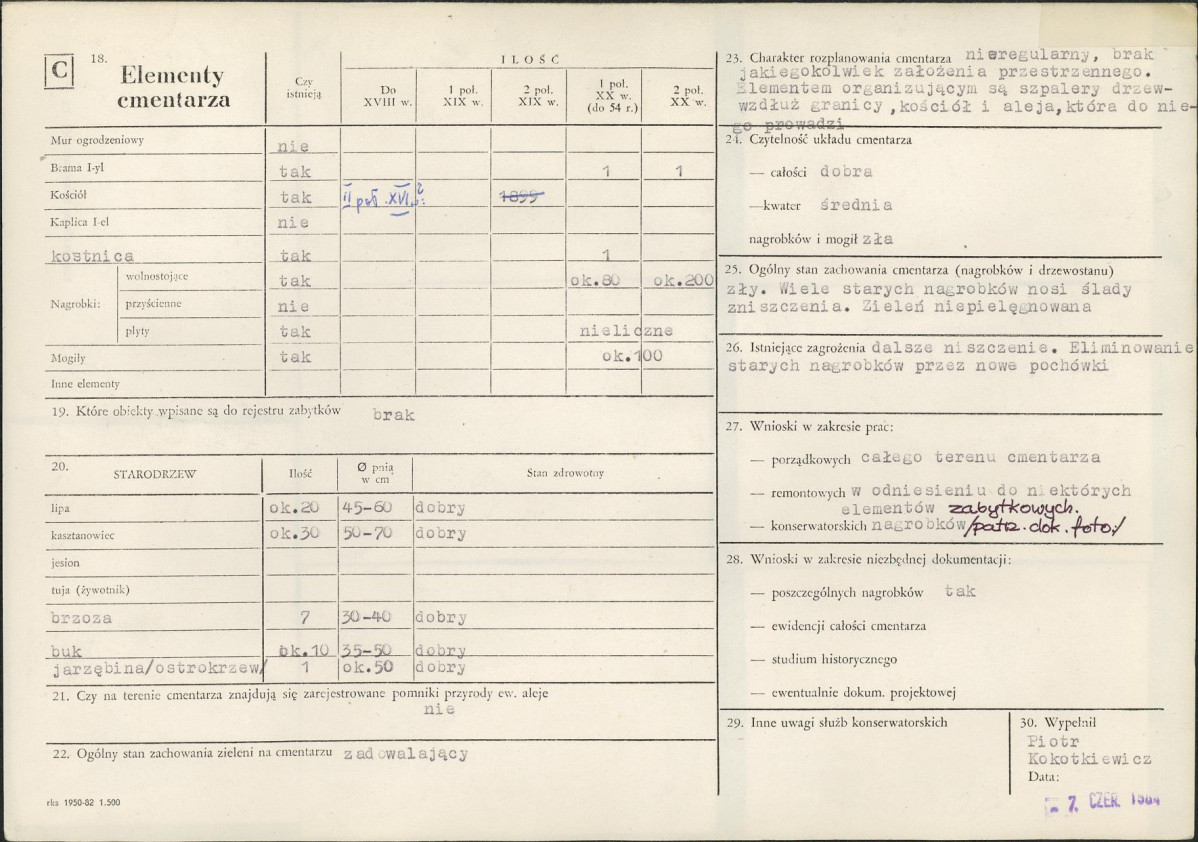 C
18.
Elementy
cmentarza
Czy
istnieją
ILOŚĆ
Do
XVIII w.
1 poł.
XIX w.
2 poł.
XIX w.
1 poł.
XX w.
(do 54 r.)
2 poł.
XX w.
Mur ogrodzeniowy nie
Brama I-yl tak 1 1
Kościół tak II poł. XVI w. ? 1899
Kaplica I-el nie
kostnica tak 1
Nagrobki: wolnostojące tak ok.80 ok.200
przyścienne nie
płyty tak nieliczne
Mogiły tak ok.100
Inne elementy
19. Które obiekty wpisane są do rejestru zabytków brak
20. STARODRZEW Ilość Ø pnia
w cm Stan zdrowotny
lipa ok.20 45-60 dobry
kasztanowiec ok.30 50-70 dobry
jesion
tuja (żywotnik)
brzoza 7 30-40 dobry
buk ok.10 35-50 dobry
jarzębina/ostrokrzew/ 1 ok.50 dobry
21. Czy na terenie cmentarza znajdują się zarejestrowane pomniki przyrody ew. aleje
nie
22. Ogólny stan zachowania zieleni na cmentarzu zadowalający
rks 1950-82 1.500
23. Charakter rozplanowania cmentarza nieregularny, brak
jakiegokolwiek założenia przestrzennego.
Elementem organizującym są szpalery drzew-
wzdłuż granicy ,kościół i aleja,która do nie-
go prowadzi
24. Czytelność układu cmentarza
— całości dobra
—kwater średnia
nagrobków i mogił zła
25. Ogólny stan zachowania cmentarza (nagrobków i drzewostanu)
zły. Wiele starych nagrobków nosi ślady
zniszczenia. Zieleń niepielęgnowana
26. Istniejące zagrożenia dalsze niszczenie. Eliminowanie
starych nagrobków przez nowe pochówki
27. Wnioski w zakresie prac:
— porządkowych całego terenu cmentarza
— remontowych w odniesieniu do niektórych
elementów zabytkowych.
— konserwatorskich nagrobków /patrz. dok. foto./
28. Wnioski w zakresie niezbędnej dokumentacji:
— poszczególnych nagrobków tak
— ewidencji całości cmentarza
— studium historycznego
— ewentualnie dokum. projektowej
29. Inne uwagi służb konserwatorskich
30. Wypełnił
Piotr
Kokotkiewicz
Data:
- 7. CZER. 1984